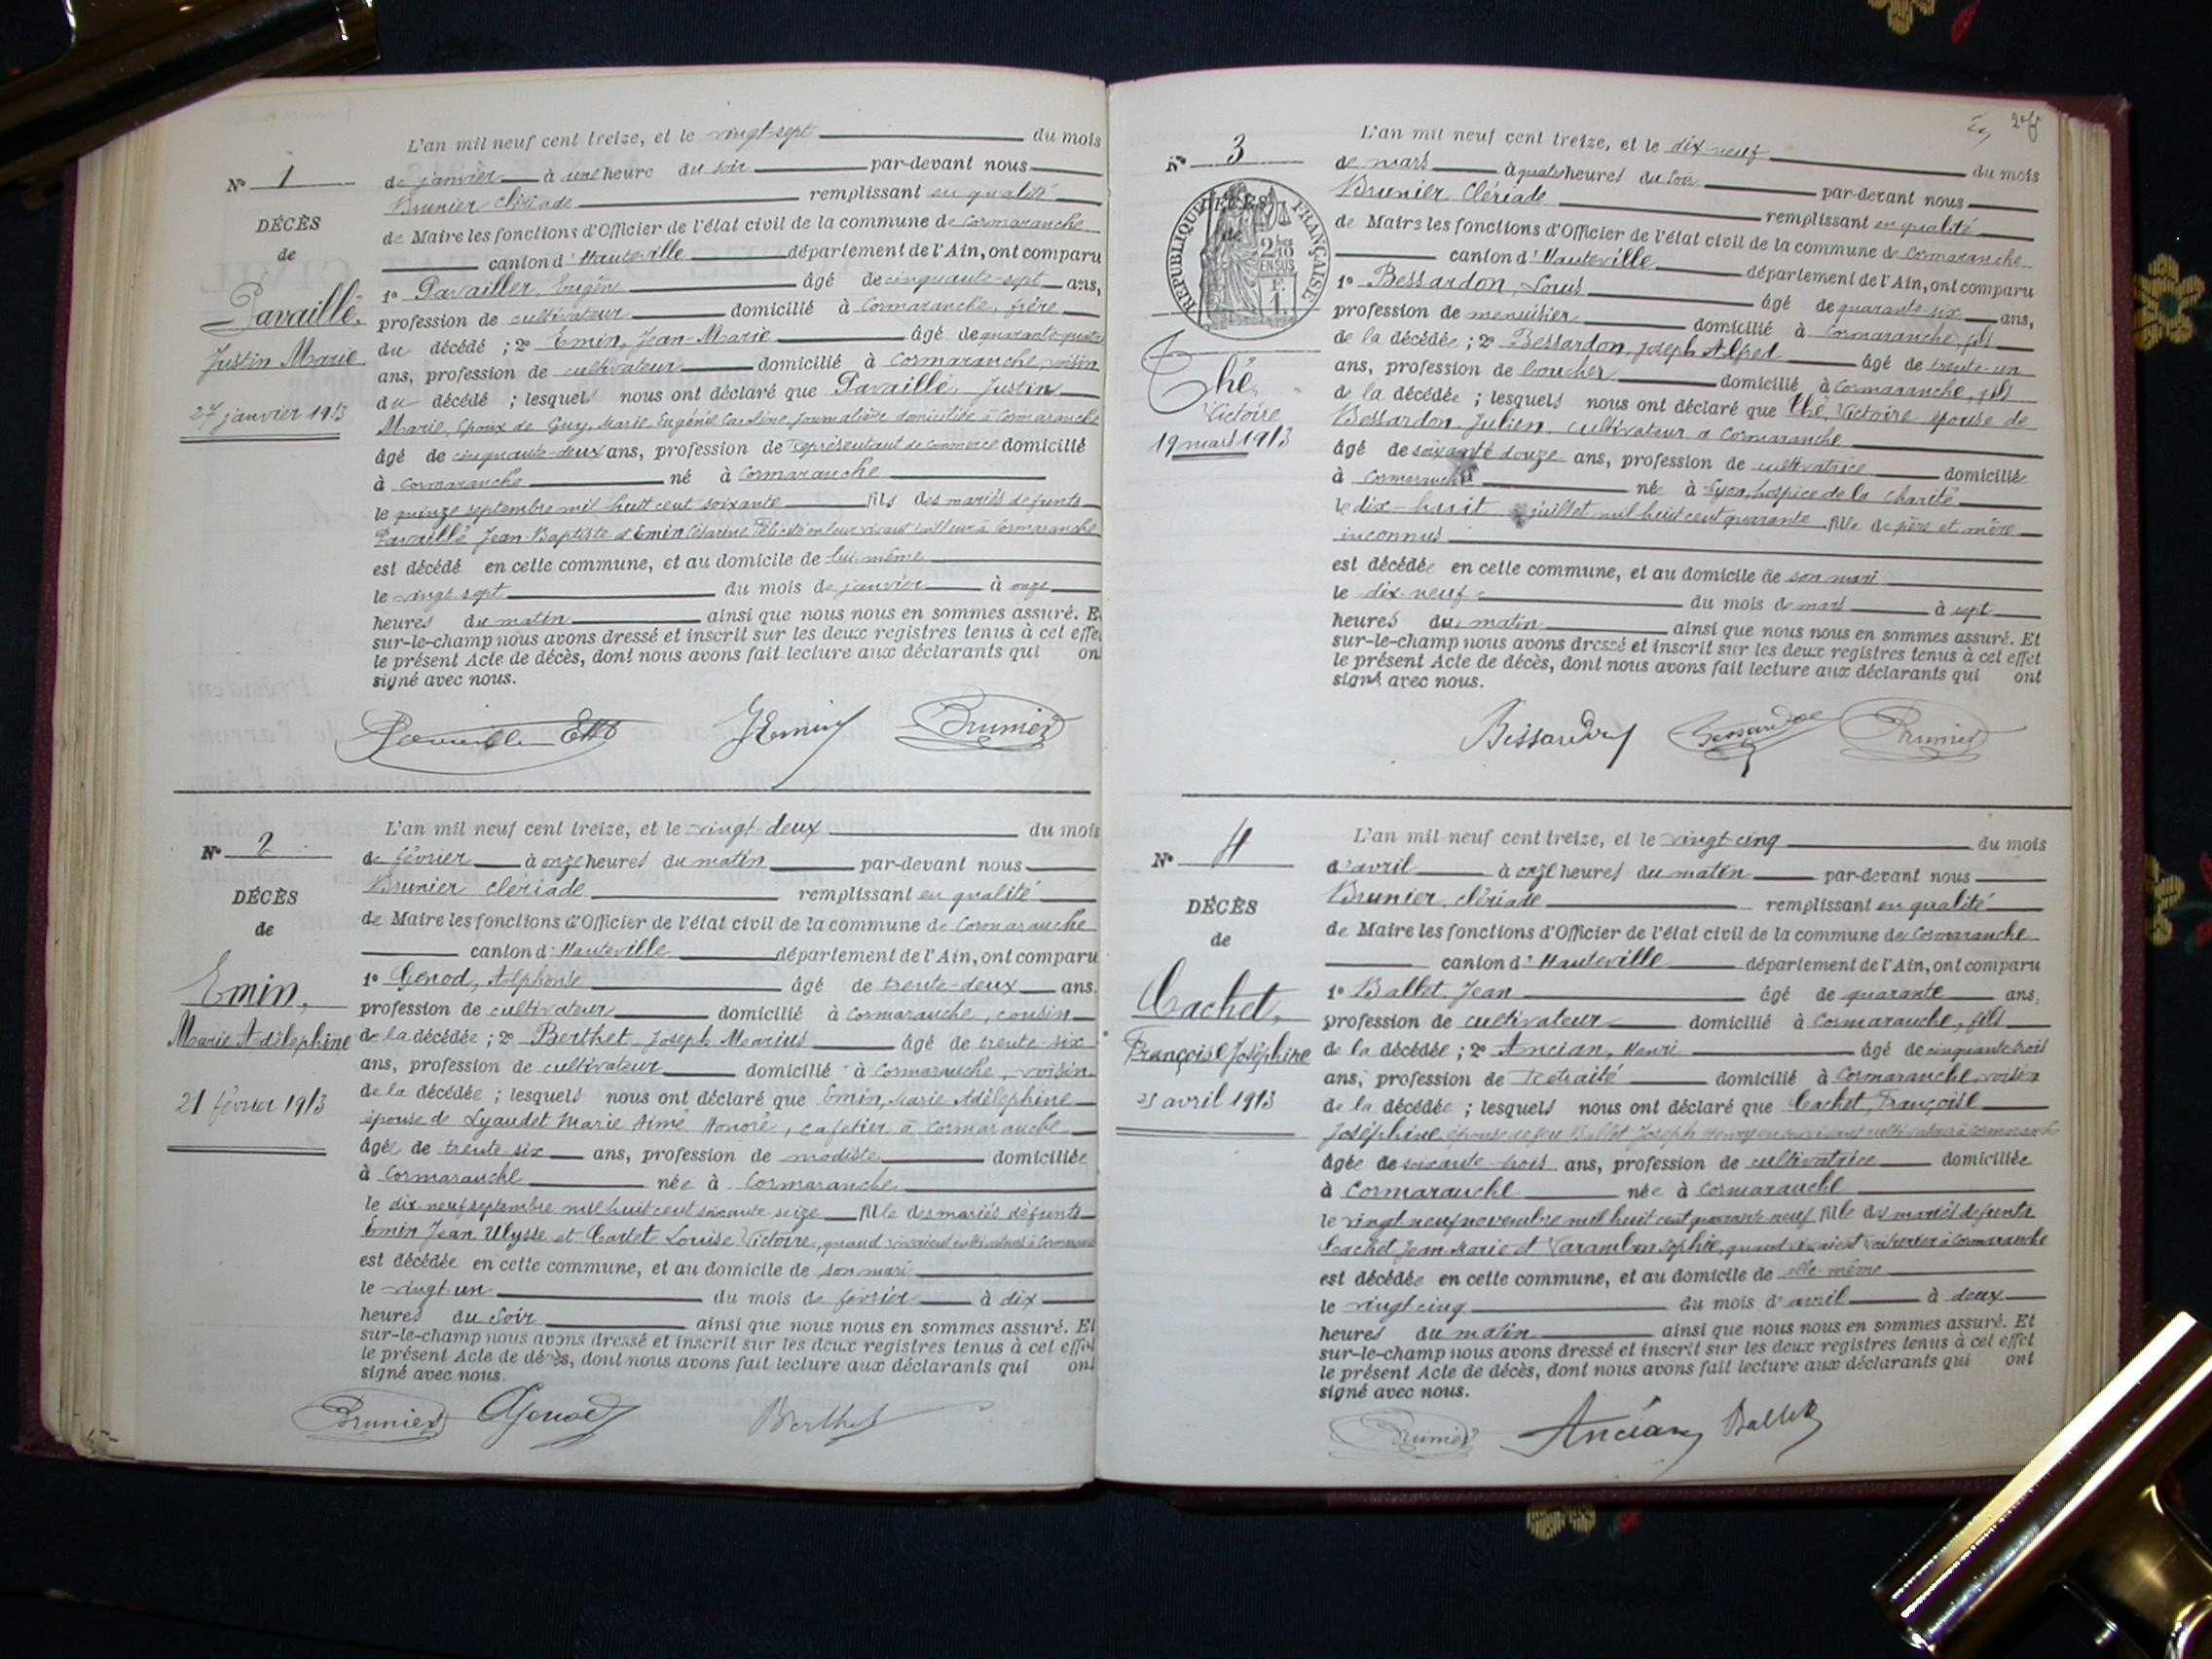 L'an mil neuf cent treize, et le vingt-sept du mois
N° 1
de janvier à une heure du soir par-devant nous
Brunier Clériade remplissant en qualité
DÉCÈS
de
de Maire les fonctions d'Officier de l'état civil de la commune de Cormaranche
canton d'Hauteville département de l'Ain, ont comparu
Pavaillé,
Justin Marie
27 janvier 1913
1° Pavailler, Eugène âgé de cinquante-sept ans,
profession de cultivateur domicilié à Cormaranche, frère
du décédé ; 2° Emin, Jean-Marie âgé de quarante-quatre
ans, profession de cultivateur domicilié à Cormaranche, voisin
du décédé ; lesquels nous ont déclaré que Pavaillé, Justin
Marie, époux de Guy, Marie Eugénie Caroline, journalière domiciliée à Cormaranche
âgé de cinquante-deux ans, profession de représentant de commerce domicilié
à Cormaranche né à Cormaranche
le quinze septembre mil huit cent soixante fils des mariés défunts
Pavaillé Jean-Baptiste et Emin Césarine Félicité en leur vivant tailleur à Cormaranche
est décédé en cette commune, et au domicile de lui-même
le vingt-sept du mois de janvier à onze
heures du matin ainsi que nous nous en sommes assuré. E
sur-le-champ nous avons dressé et inscrit sur les deux registres tenus à cet effe
le présent Acte de décès, dont nous avons fait lecture aux déclarants qui on
signé avec nous.
JEmin Brunier
L'an mil neuf cent treize, et le vingt-deux du mois
N° 2
de février à onze heures du matin par-devant nous
Brunier Clériade remplissant en qualité
DÉCÈS
de
de Maire les fonctions d'Officier de l'état civil de la commune de Cormaranche
canton d'Hauteville département de l'Ain, ont comparu
Emin,
Marie Adélephine
21 février 1913
1° Genod, Alphonse âgé de trente-deux ans,
profession de cultivateur domicilié à Cormaranche, cousin
de la décédée ; 2° Berthet Joseph Marius âgé de trente-six
ans, profession de cultivateur domicilié à Cormaranche, voisin
de la décédée ; lesquels nous ont déclaré que Emin, Marie Adélephine
épouse de Lyaudet Marie Aimé Honoré, cafetier à Cormaranche
âgée de trente-six ans, profession de modiste domiciliée
à Cormaranche née à Cormaranche
le dix neuf septembre mil huit cent soixante seize fille des mariés défunts
Emin Jean Ulysse et Cartet Louise Victoire, quand vivaient cultivateurs à Cormaranche
est décédée en cette commune, et au domicile de son mari
le vingt un du mois de février à dix
heures du soir ainsi que nous nous en sommes assuré. Et
sur-le-champ nous avons dressé et inscrit sur les deux registres tenus à cet effet
le présent Acte de décès, dont nous avons fait lecture aux déclarants qui ont
signé avec nous.
Brunier AGenod Berthet
L'an mil neuf cent treize, et le dix neuf du mois
N° 3
de mars à quatre heures du soir par-devant nous
Brunier, Clériade remplissant en qualité
DÉCÈS
de
RÉPUBLIQUE FRANÇAISE
2/10
EN SUS
F.
1.
de Maire les fonctions d'Officier de l'état civil de la commune de Cormaranche
canton d'Hauteville département de l'Ain, ont comparu
Thé,
Victoire
19 mars 1913
1° Bessardon, Louis âgé de quarante-six ans,
profession de menuisier domicilié à Cormaranche, fils
de la décédée ; 2° Bessardon, Joseph Alfred âgé de trente-un
ans, profession de boucher domicilié à Cormaranche, fils
de la décédée ; lesquels nous ont déclaré que Thé, Victoire épouse de
Bessardon Julien cultivateur à Cormaranche
âgé de soixante douze ans, profession de cultivatrice domiciliée
à Cormaranche née à Lyon, hospice de la Charité
le dix-huit juillet mil huit cent quarante fille de père et mère
inconnus
est décédée en cette commune, et au domicile de son mari
le dix-neuf du mois de mars à sept
heures du matin ainsi que nous nous en sommes assuré. Et
sur-le-champ nous avons dressé et inscrit sur les deux registres tenus à cet effet
le présent Acte de décès, dont nous avons fait lecture aux déclarants qui ont
signé avec nous.
Bessardon Bessardon Brunier
L'an mil neuf cent treize, et le vingt-cinq du mois
N° 4
d'avril à onze heures du matin par-devant nous
Brunier, Clériade remplissant en qualité
DÉCÈS
de
de Maire les fonctions d'Officier de l'état civil de la commune de Cormaranche
canton d'Hauteville département de l'Ain, ont comparu
Cachet,
Françoise Joséphine
25 avril 1913
1° Ballet, Jean âgé de quarante ans,
profession de cultivateur domicilié à Cormaranche, fils
de la décédée ; 2° Ancian, Henri âgé de cinquante-trois
ans, profession de retraité domicilié à Cormaranche, voisin
de la décédée ; lesquels nous ont déclaré que Cachet, Françoise
Joséphine épouse de feu Ballet Joseph cultivateur à Cormaranche
âgée de soixante-trois ans, profession de cultivatrice domiciliée
à Cormaranche née à Cormaranche
le vingt neuf novembre mil huit cent quarante neuf fille des mariés défunts
Cachet Jean-Marie et Varambon Sophie, quand vivaient à Cormaranche
est décédée en cette commune, et au domicile de elle-même
le vingt cinq du mois d'avril à deux
heures du matin ainsi que nous nous en sommes assuré. Et
sur-le-champ nous avons dressé et inscrit sur les deux registres tenus à cet effet
le présent Acte de décès, dont nous avons fait lecture aux déclarants qui ont
signé avec nous.
Brunier Ancian Ballet